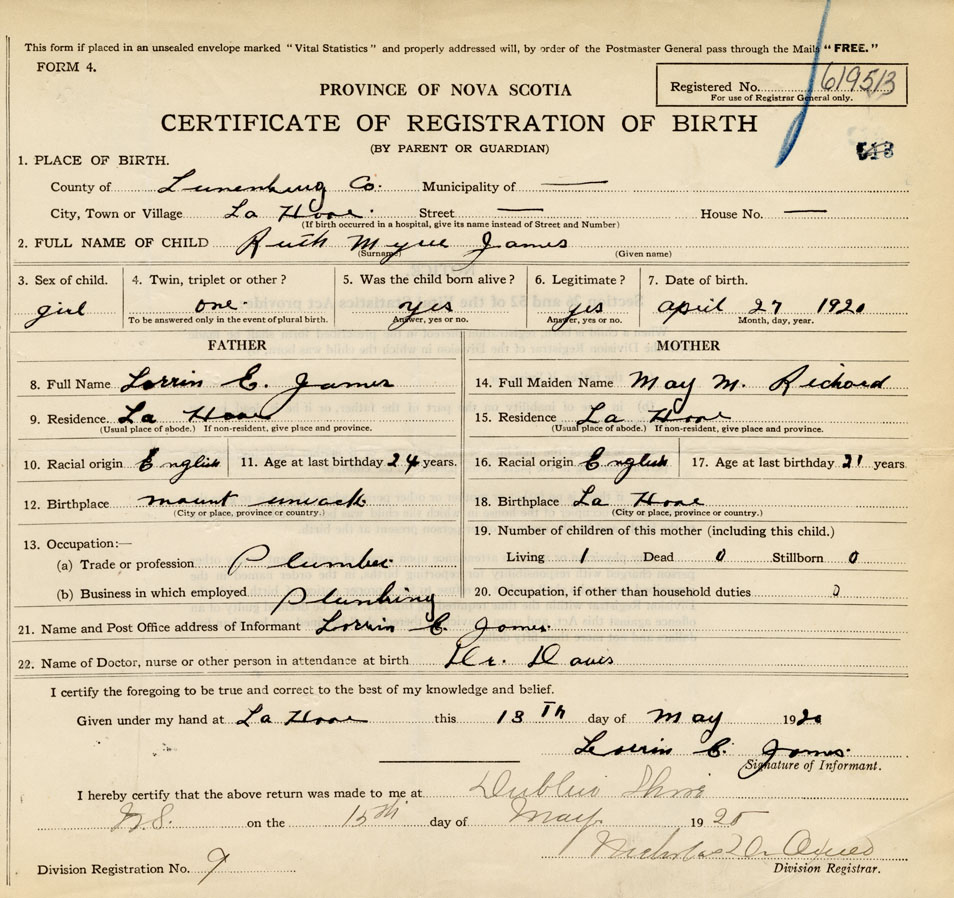 This form if placed in an unsealed envelope marked "Vital Statistics" and properly addressed will, by order of the Postmaster General pass through the Mails "FREE."
FORM 4.
Registered No. 619513
For use of Registrar General only.
PROVINCE OF NOVA SCOTIA
CERTIFICATE OF REGISTRATION OF BIRTH
(BY PARENT OR GUARDIAN)
513
1. PLACE OF BIRTH.
County of Lunenburg Co. Municipality of —
City, Town or Village La Have. Street — House No. —
(If birth occurred in a hospital, give its name instead of Street and Number)
2. FULL NAME OF CHILD Ruth James
(Surname) (Given name)
3. Sex of child. 4. Twin, triplet or other? 5. Was the child born alive? 6. Legitimate? 7. Date of birth.
girl one. yes yes april 27 1920
To be answered only in the event of plural birth. Answer, yes or no. Answer, yes or no. Month, day, year.
FATHER MOTHER
8. Full Name Lorrin E. James 14. Full Maiden Name May M. Richard
9. Residence La Have 15. Residence La Have
(Usual place of abode.) If non-resident, give place and province. (Usual place of abode.) If non-resident, give place and province.
10. Racial origin English 11. Age at last birthday 24 years. 16. Racial origin English 17. Age at last birthday 21 years
12. Birthplace mount 18. Birthplace La Have
(City or place, province or country.) (City or place, province or country.)
19. Number of children of this mother (including this child.)
13. Occupation:—
Living 1 Dead 0 Stillborn 0
(a) Trade or profession Plumber
(b) Business in which employed Plumbing 20. Occupation, if other than household duties
21. Name and Post Office address of Informant Lorrin E. James.
22. Name of Doctor, nurse or other person in attendance at birth Dr. Davis
I certify the foregoing to be true and correct to the best of my knowledge and belief.
Given under my hand at La Have this 13th day of May 1920
Lorrin E. James.
Signature of Informant.
I hereby certify that the above return was made to me at Dublin Shore
N.S. on the 15th day of May 1920
Nicholas
Division Registration No. 9 Division Registrar.